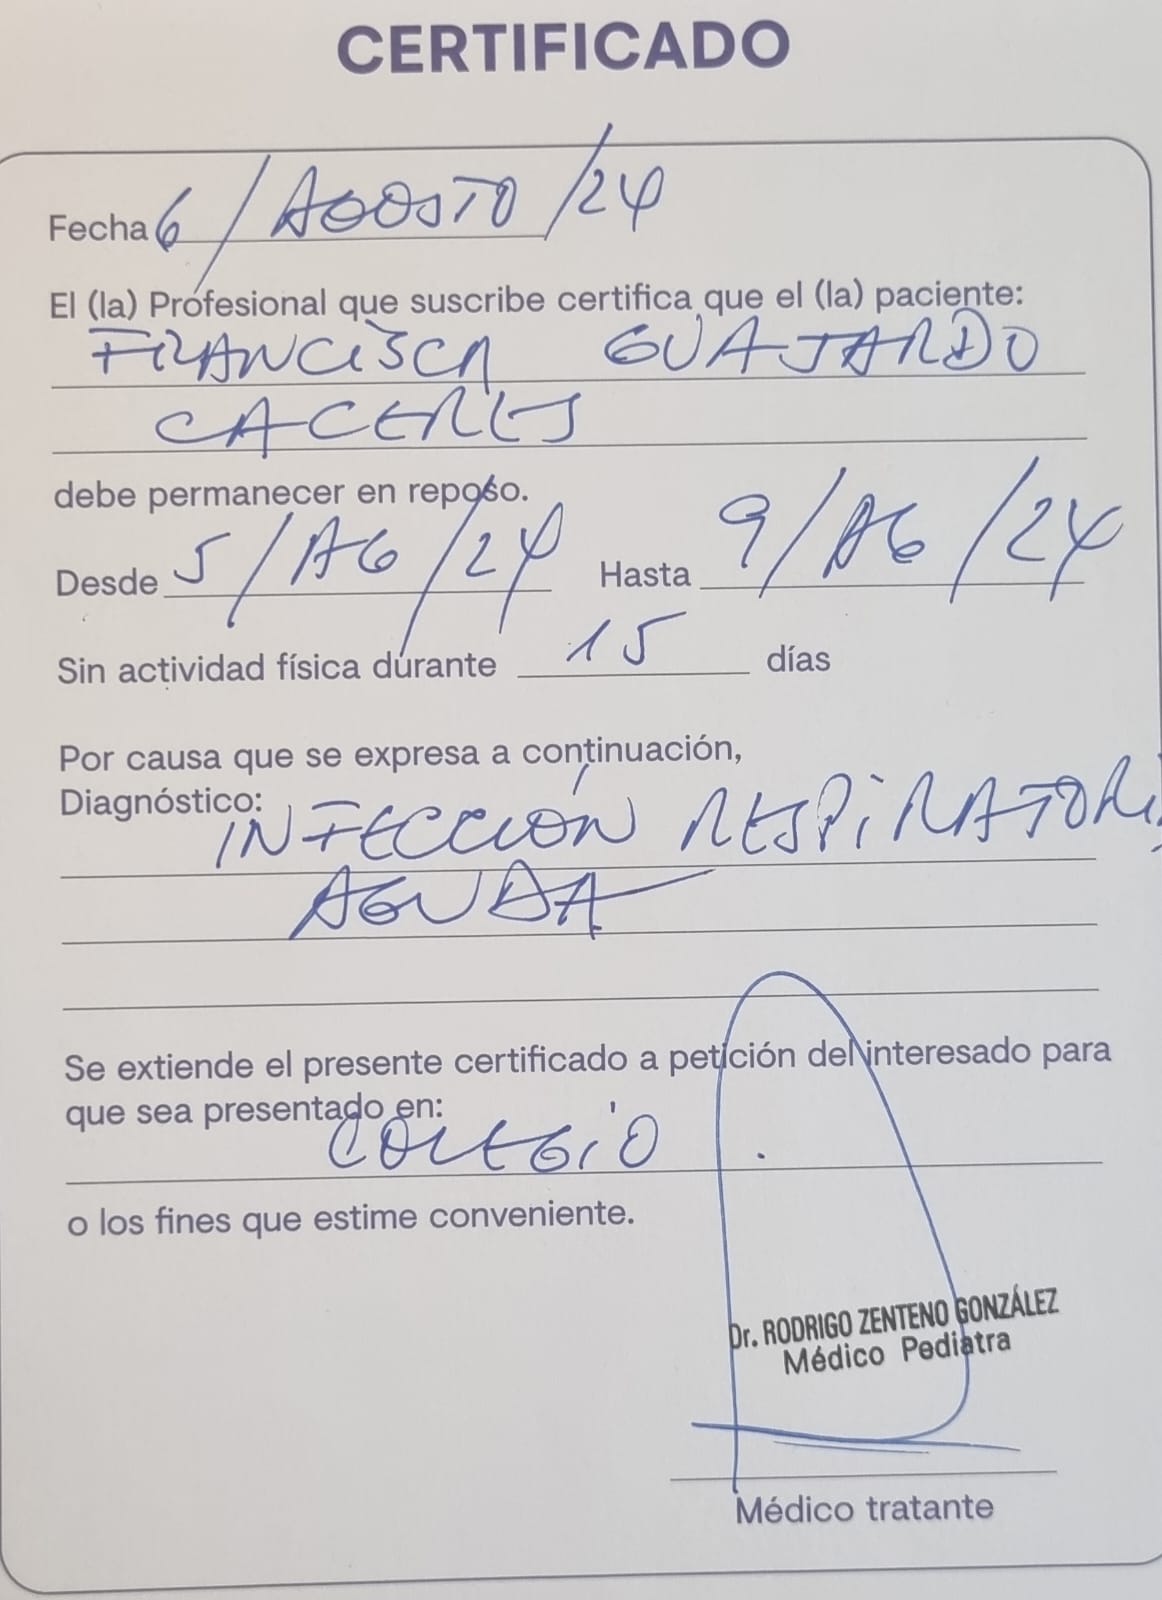 CERTIFICADO
Fecha 6 / AGOSTO / 24
El (la) Profesional que suscribe certifica que el (la) paciente:
FRANCISCA GUAJARDO
CACERES
debe permanecer en reposo.
Desde 5 / AG / 24 Hasta 9 / AG / 24
Sin actividad física durante 15 días
Por causa que se expresa a continuación,
Diagnóstico: INFECCIÓN RESPIRATORI
AGUDA
Se extiende el presente certificado a petición del interesado para
que sea presentado en:
COLEGIO
o los fines que estime conveniente.
Dr. RODRIGO ZENTENO GONZÁLEZ
Médico Pediatra
Médico tratante